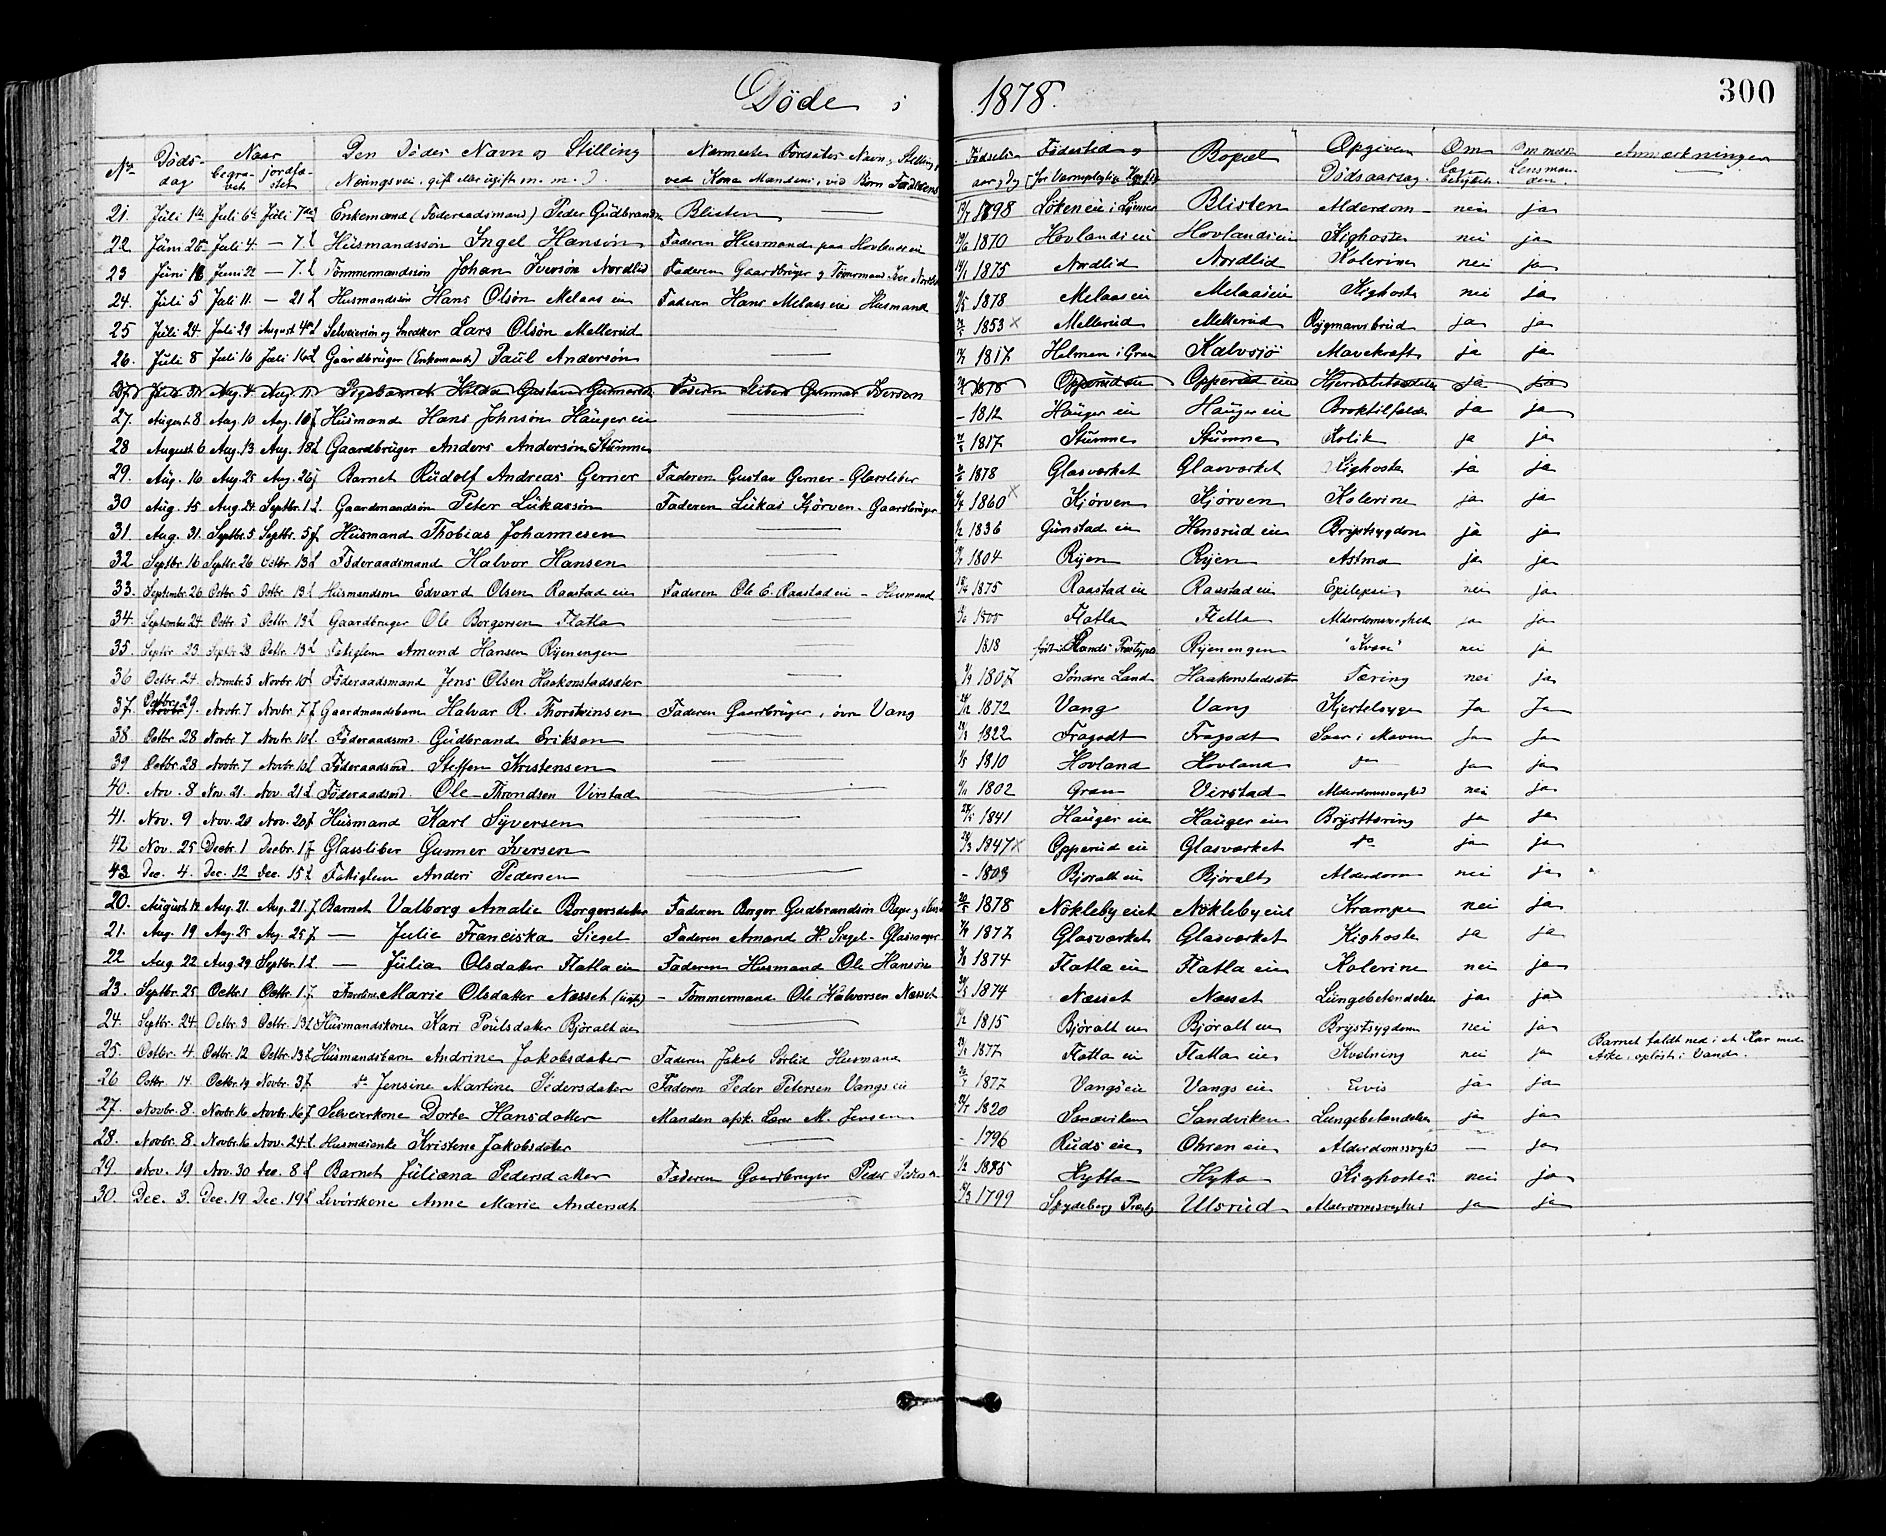 Döde i 1878.
300
No Döds-dag Naar begra-vet jordfæ-stet Den Dödes Navn og Stilling Næringsvei, gift eller ugift m. m. Nærmeste Foresattes Navn, Stilling, ved Kone Mandens, ved Børn Födested og Bopæl Opgiven Dödsaarsag Om Om meldt Lensman-den Anmærkninger
21. Juli 1ste Juli 6te Juli 7de Enkemand (Föderaadsmand) Peder Gudbrandsen Blisten 1798 Löken eie i Blisten Alderdom nei ja
22 Juni 25 Juli 4. — 7. L Husmandssön Ingel Hansön Faderen Husmand paa Hovlandseie 1870 Hovlandseie Hovlandseie Kighoste nei ja
23 Juni 18 Juni 22 — 7. L Tömmermandssön Johan Iversön Nordlid Faderen Gaardbruger og Tömmermand Iver Nordlid 1875 Nordlid Nordlid Kolerine nei ja
24. Juli 5 Juli 11. — 21 L Husmandssön Hans Olsön Melaas eie Faderen Hans Melaas eie Husmand 1878 Melaas eie Melaas eie Kighoste nei ja
25 Juli 24 Juli 29 August 4 L Selveiersön og Snedker Lars Olsön Mellerud 1853 x Mellerud Mellerud Rygmarvsbrud ja ja
26. Juli 8 Juli 16 Juli 16 L Gaardbruger (Enkemand) Paul Andersön — 1817 Helmen i Gran Kalvsjö Mavekræft ja ja
27 Juli 31 Aug. 4 Aug. 11 Pigebarnet Hilda Gustava Gunnarsd. Faderen Sliber Gunnar Iversen 1878 Opperud eie Opperud eie ja ja
27. August 8 Aug. 10 Aug. 16 f Husmand Hans Johnsön Hauger eie — - 1812 Hauger eie Hauger eie Broktilfælde ja ja
28 August 6 Aug. 13 Aug. 18 L Gaardbruger Anders Andersön Stumne 1817 Stumne Stumne Kolik ja ja
29. Aug. 16 Aug. 25 Aug. 26 f Barnet Rudolf Andreas Gerner Faderen Gustav Gerner - Glassliber 1878 Glasværket Glasværket Kighoste ja ja
30 Aug. 15 Aug. 24 Septbr. 1 L. Gaardmandssön Peter Lukassön Faderen Lukas Kjörven - Gaardbruger 1860 x Kjörven Kjörven Kolerine ja ja
31. Aug. 31. Septbr. 5 Septbr. 5 f Husmand Thobias Johannesen — 1836 Gunstad eie Hensrud eie Brystsygdom ja ja
32 Septbr. 16 Septbr. 26 Octbr. 13 L Föderaadsmand Halvor Hansen — 1804 Ryen Ryen Astma ja ja
33. September 26 Octbr. 5 Octbr. 13 L Husmandssön Edvard Olsen Raastad eie Faderen Ole E. Raastad eie - Husmand 1875 Raastad eie Raastad eie Epilepsi nei ja
34. September 24. Octbr. 5 Octbr. 13 L Gaardbruger Ole Borgersen Flatla — 1800 Flatla Flatla Alderdomssvaghed ja ja
35. Septbr. 23 Septbr. 28 Octbr. 13 L Fatiglem Amund Hansen Ryenengen — 1818 född i Lands Præstegjeld Ryenengen "Kvæsi" nei ja
36 Octbr. 24. Novmbr. 5 Novbr. 10 L Föderaadsmand Jens Olsen Haakonstadsæter — 1807 Söndre Land Haakonstadsæter Tæring nei ja
37. Octbr. 29. Novbr. 7 Novbr. 7 f Gaardmandsbarn Halvar R. Thorsteinsen Faderen Gaardbruger, övre Vang 1872 Vang Vang Kjertelsyge Ja Ja
38 Octbr. 28 Novbr. 7 Novbr. 10 L. Föderaadsmd. Gudbrand Eriksen — 1822 Fragodt Fragodt Saar i Maven Ja Ja
39 Octbr. 28. Novbr. 7 Novbr. 10 L Föderaadsmd. Steffen Kristensen — 1810 Hovland Hovland do ja ja
40. Nov. 8 Nov. 21. Nov. 21 L Föderaadsmd. Ole Throndsen Virstad — 1802 Gran Virstad Alderdomssvaghed nei ja
41. Nov. 9 Nov. 20 Nov. 20 f Husmand Karl Syversen — 1841 Hauger eie Hauger eie Brysttæring ja ja
42 Nov. 25 Decbr. 1 Decbr. 1 f Glassliber Gunner Iversen — 1847 x Opperud eie Glasværket do ja ja
43 Dec. 4. Dec. 12 Dec. 15 L Fatiglem Anders Pedersen — - 1803 Björalt eie Björalt Alderdom nei ja
20. August 12 Aug. 21. Aug. 21. f Barnet Valborg Amalie Borgersdatter Faderen Borger Gudbrandsön 1878 Nöklebyeiet Nöklebyeiet Krampe nei ja
21. Aug. 19 Aug. 25 Aug. 25 f — Julie Franciska Siegel Faderen Amand H. Siegel - Glasmager 1877 Glasværket Glasværket Kighoste ja ja
22 Aug 22 Aug. 29 Septbr. 1 L — Julia Olsdatter Flatla eie Faderen Husmand Ole Hansön 1874 Flatla eie Flatla eie Kolerine nei ja
23. Septbr. 25 Octbr. 1 Octbr. 1 f Marie Olsdatter Næsset (ugift) - Tömmermand Ole Halvorsen Næsset 1874 Næsset Næsset Lungebetændelse ja ja
24. Septbr. 24. Octbr. 3 Octbr. 13 L Husmandskone Kari Poulsdatter Björalt eie — 1815 Björalt eie Björalt eie Brystsygdom nei ja
25. Octbr. 4. Octbr. 12 Octbr. 13 L Husmandsbarn Andrine Jakobsdatter Faderen Jakob Sörlid Husmand 1877 Flatla eie Flatla eie Kvælning nei ja Barnet faldt ned i et Kar med Aske, oplöst i Vand.
26 Octbr. 14. Octbr. 19 Novbr. 3 f do Jensine Martine Pedersdatter Faderen Peder Petersen Vangs eie 1877 Vangs eie Vangs eie Uvis ja ja
27. Novbr. 8. Novbr. 16 Novbr. 16 f Selveierkone Dorte Hansdatter Manden afsk. Lars M. Jensen 1820 Sandviken Sandviken Lungebetændelse ja ja
28. Novbr. 8 Novbr. 16 Nov. 24 L. Husmdsenke Kristene Jakobsdatter — - 1796 Ruds eie Ohren eie Alderdomssvaghed — ja
29. Nov. 19 Nov. 30 Dec. 8 L Barnet Juliana Pedersdatter Faderen Gaardbruger Peder 1875 Hytta Hytta Kighoste nei ja
30. Dec. 3. Dec. 19 Dec. 19 L Anne Marie Andersdt — 1799 Spydeberg Præstgj. Ulsrud Alderdomssvaghed ja ja